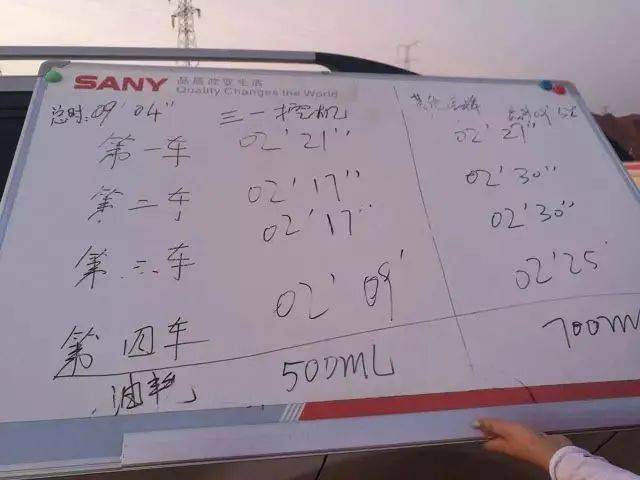 SANY 品质改变世界
Quality Changes the World
总时:09'04" 三一挖机 其他品牌
第一车 02'21" 02'27"
第二车 02'17" 02'30"
第三车 02'17" 02'30"
第四车 02'09' 02'25'
油耗 500ML 700M